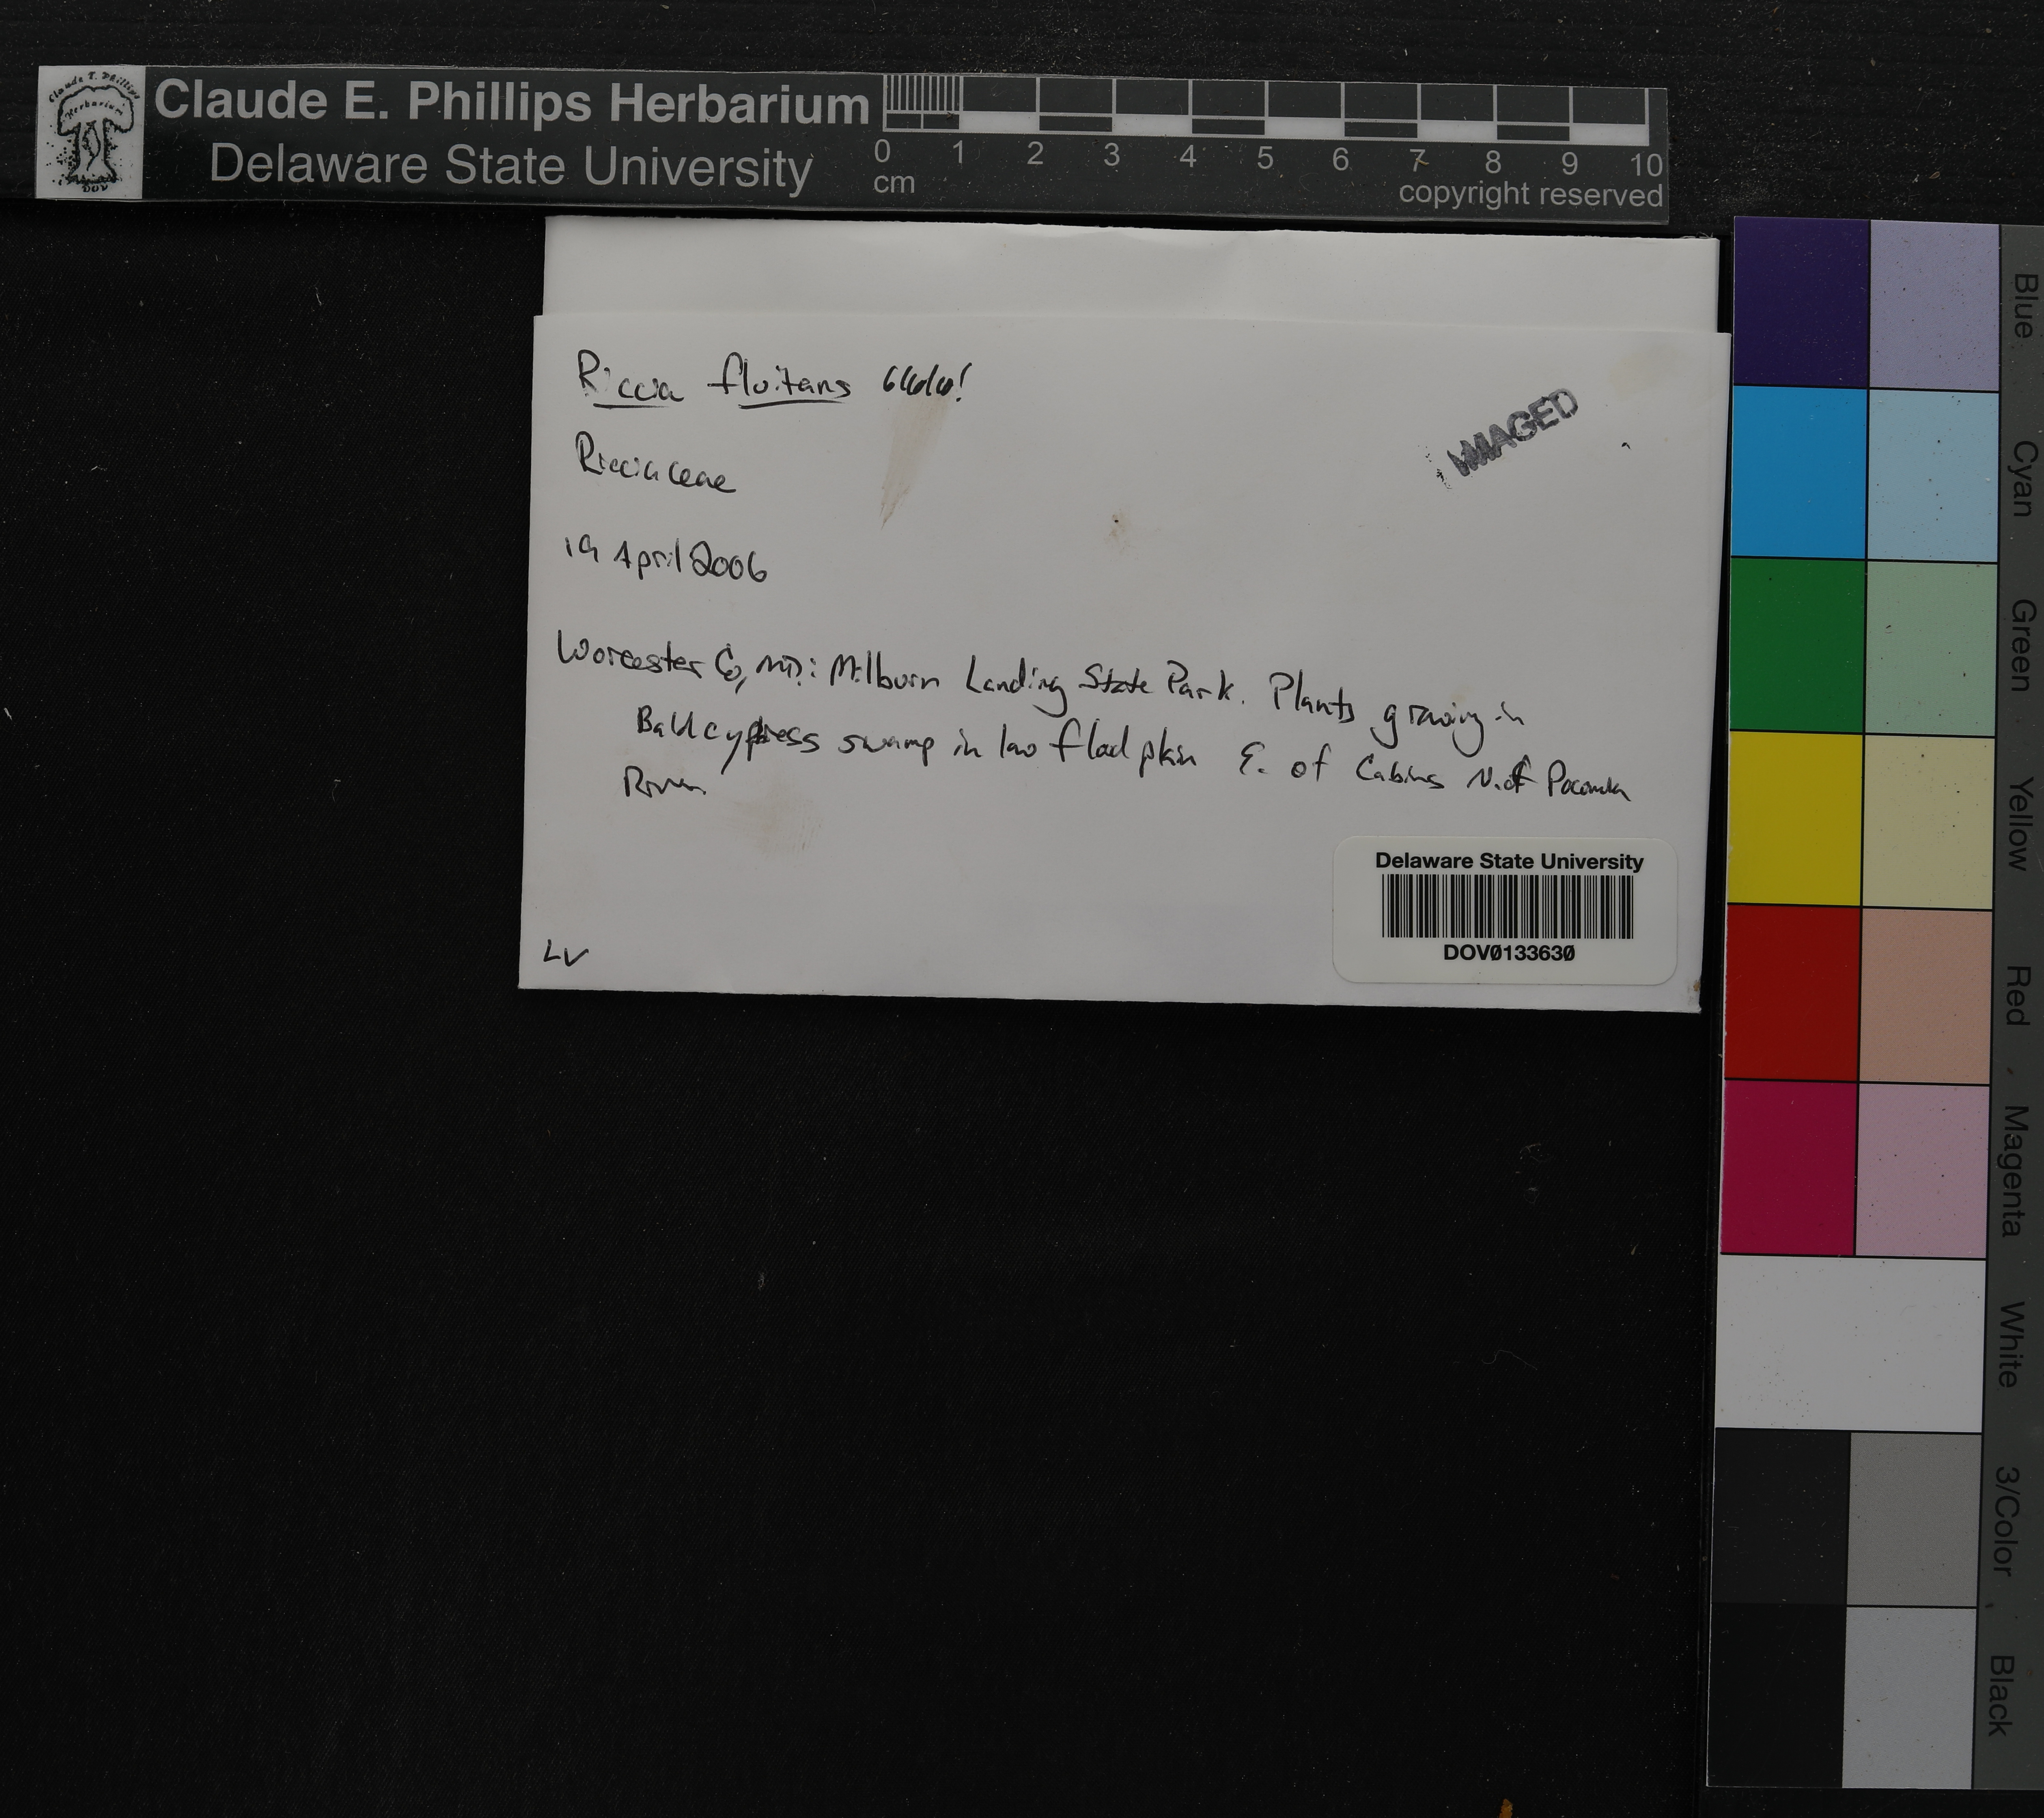 Claude E. Phillips Herbarium
Delaware State University
0 1 2 3 4 5 6 7 8 9 10
cm
copyright reserved
Claude E. Phillips Herbarium
DOV
Riccia fluitans
IMAGED
Ricciaceae
19 April 2006
Worcester Co, MD: Milburn Landing State Park. Plants growing in
Baldcypress swamp in low flood plain E. of Cabins N. of Pocomoke
River
LV
Delaware State University
DOV0133630
Blue
Cyan
Green
Yellow
Red
Magenta
White
3/Color
Black